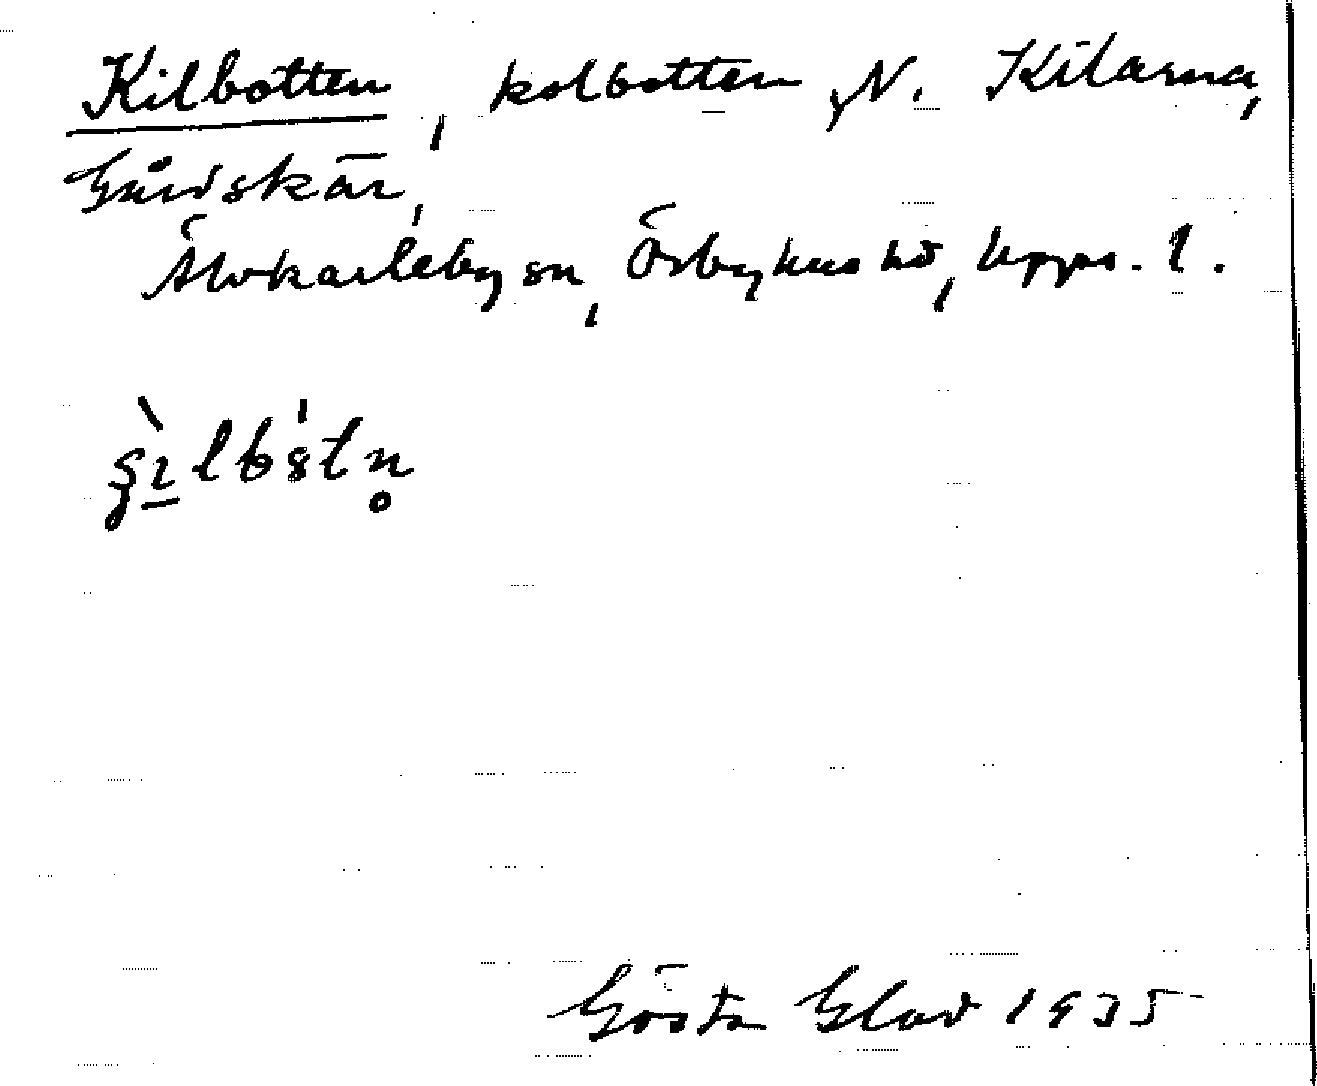 Kilbotten, kolbotten, N. Kilarna,
Gårdskär,
Älvkarleby sn, Örbyhus hd, Upps. l.
Gösta Glad 1935